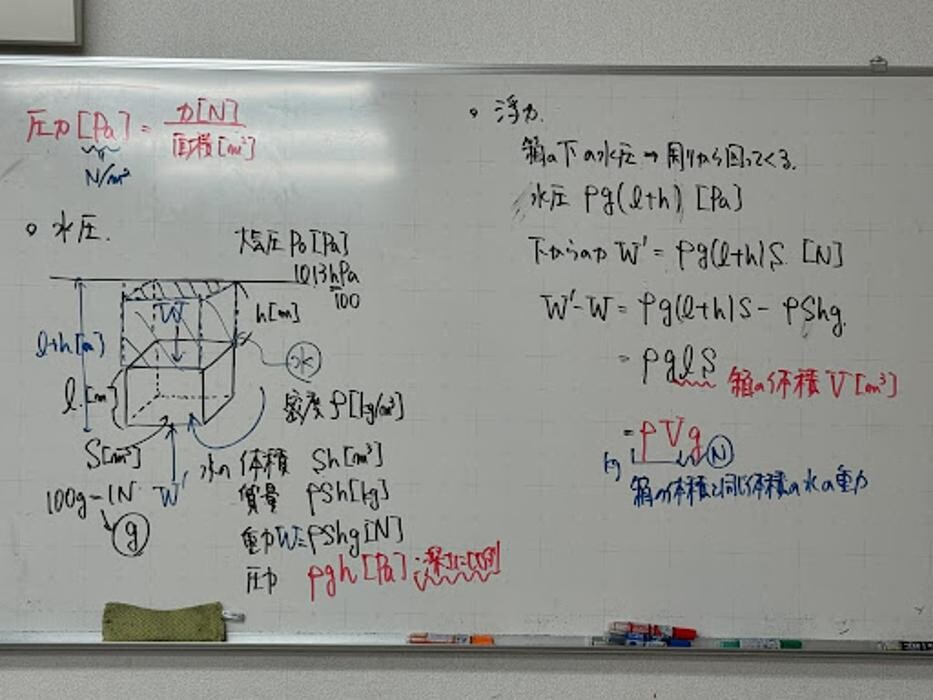 圧力[Pa] = 力[N] / 面積[m²]
N/m²
○ 水圧.
大気圧 P₀[Pa]
1013hPa
100
W
h[m]
l+h[m]
水
l[m]
密度 ρ[kg/m³]
S[m²]
水の 体積 Sh[m³]
100g-1N W'
質量 ρSh[kg]
g
重力W=ρShg[N]
圧力 ρgh[Pa]
○ 浮力.
箱の下の水圧→周りから回ってくる.
水圧 ρg(l+h) [Pa]
下からの力 W' = ρg(l+h)S [N]
W'-W = ρg(l+h)S - ρShg.
= ρglS
箱の体積 V[m³]
= ρVg
kg N
箱の体積と同じ体積の水の重力